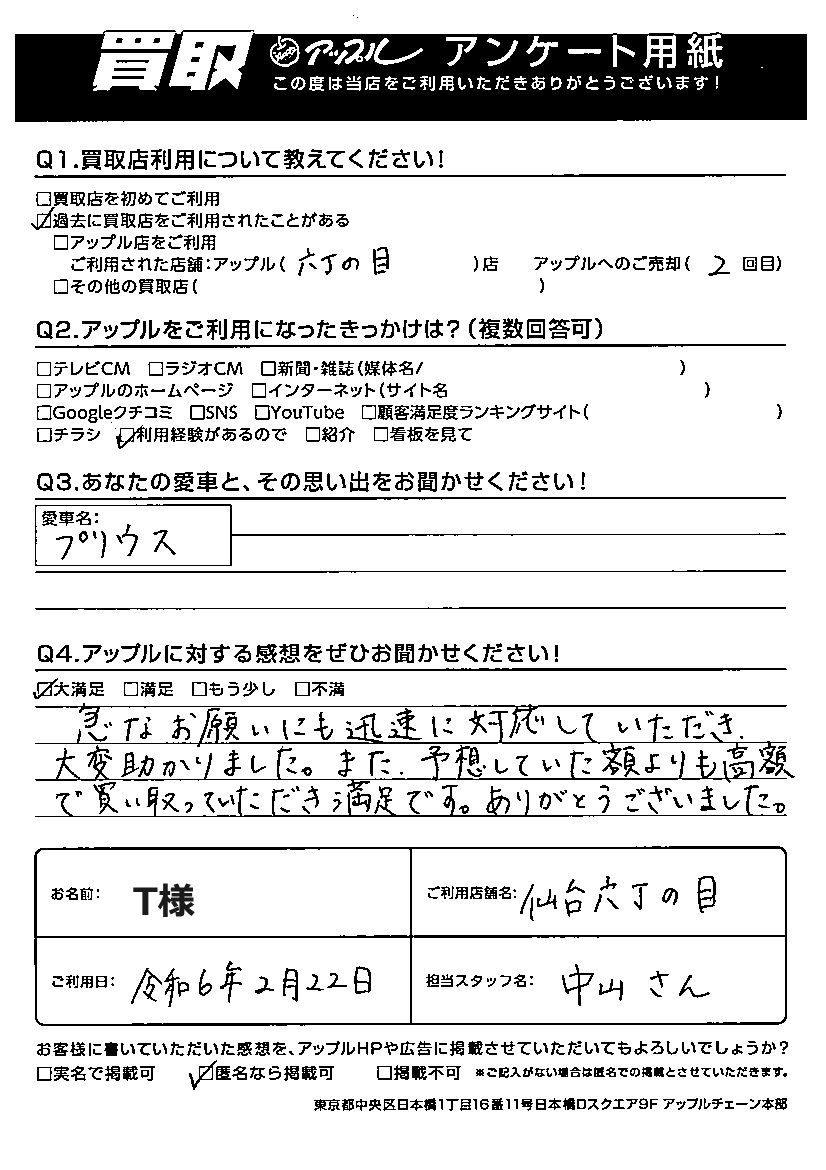 買取 アップル アンケート用紙
この度は当店をご利用いただきありがとうございます!
Q1.買取店利用について教えてください!
□買取店を初めてご利用
☑過去に買取店をご利用されたことがある
□アップル店をご利用
ご利用された店舗:アップル( 六丁の目 )店 アップルへのご売却( 2 回目)
□その他の買取店( )
Q2.アップルをご利用になったきっかけは?(複数回答可)
□テレビCM □ラジオCM □新聞・雑誌(媒体名/ )
□アップルのホームページ □インターネット(サイト名 )
□Googleクチコミ □SNS □YouTube □顧客満足度ランキングサイト( )
□チラシ ☑利用経験があるので □紹介 □看板を見て
Q3.あなたの愛車と、その思い出をお聞かせください!
愛車名:
プリウス
Q4.アップルに対する感想をぜひお聞かせください!
☑大満足 □満足 □もう少し □不満
急なお願いにも迅速に対応していただき、
大変助かりました。また、予想していた額よりも高額
で買い取っていただき満足です。ありがとうございました。
お名前: T様 ご利用店舗名: 仙台六丁の目
ご利用日: 令和6年2月22日 担当スタッフ名: 中山さん
お客様に書いていただいた感想を、アップルHPや広告に掲載させていただいてもよろしいでしょうか?
□実名で掲載可 ☑匿名なら掲載可 □掲載不可 ※ご記入がない場合は匿名での掲載とさせていただきます。
東京都中央区日本橋1丁目16番11号日本橋Dスクエア9F アップルチェーン本部